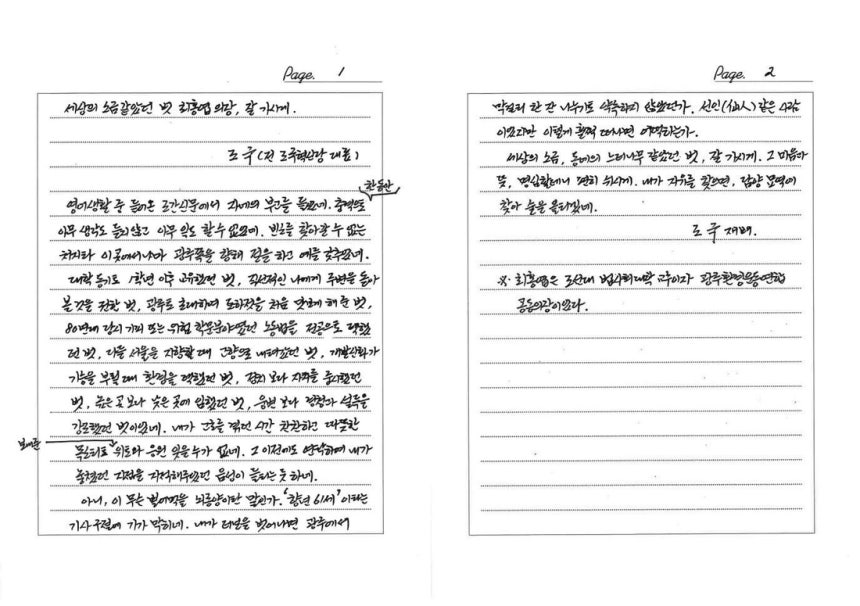 Page. 1
세상의 소금같았던 벗 최홍엽 의장, 잘 가시게.
조 국 (전 조국혁신당 대표)
한동안
영어생활 중 들어온 조간신문에서 자네의 부고를 들었네. 충격으로
아무 생각도 들지 않고 아무 일도 할 수 없었네. 빈소를 찾아갈 수 없는
처지라 이곳에서나마 광주쪽을 향해 절을 하고 예를 갖추었네.
대학 동기로 1학년 이후 교유했던 벗, 직선적인 나에게 주변을 돌아
볼 것을 권한 벗, 광주로 초대하여 오화젓을 처음 맛보게 해 준 벗,
80년대 당시 기피 또는 위험 학문분야였던 노동법을 전공으로 택했
던 벗, 다들 서울을 지향할 때 고향으로 내려갔던 벗, 개발신화가
기승을 부릴 때 환경을 택했던 벗, 정치 보다 자치를 중시했던
벗, 높은 곳 보다 낮은 곳에 임했던 벗, 웅변 보다 경청과 설득을
강조했던 벗이었네. 내가 고초를 겪던 시간 찬찬하고 따뜻한
보내준
목소리로 위로와 응원 잊을 수가 없네. 그 이전에도 연락하여 내가
놓쳤던 지점을 지적해주었던 음성이 들리는 듯 하네.
아니, 이 무슨 벌어먹을 뇌종양이란 말인가. '향년 61세' 이라는
기사 구절에 기가 막히네. 내가 터널을 벗어나면 광주에서
Page. 2
막걸리 한 잔 나누기로 약속하지 않았던가. 선인(仙人) 같은 사람
이었지만 이렇게 훌쩍 떠나면 어떡하는가.
세상의 소금, 동네의 느티나무 같았던 벗, 잘 가시게. 그 마음과
뜻, 명심할테니 편히 쉬시게. 내가 자유를 찾으면, 담양 묘역에
찾아 술을 올리겠네.
조 국 재배.
※. 최홍엽은 조선대 법사회대학 교수이자 광주환경운동연합
공동의장이었다.